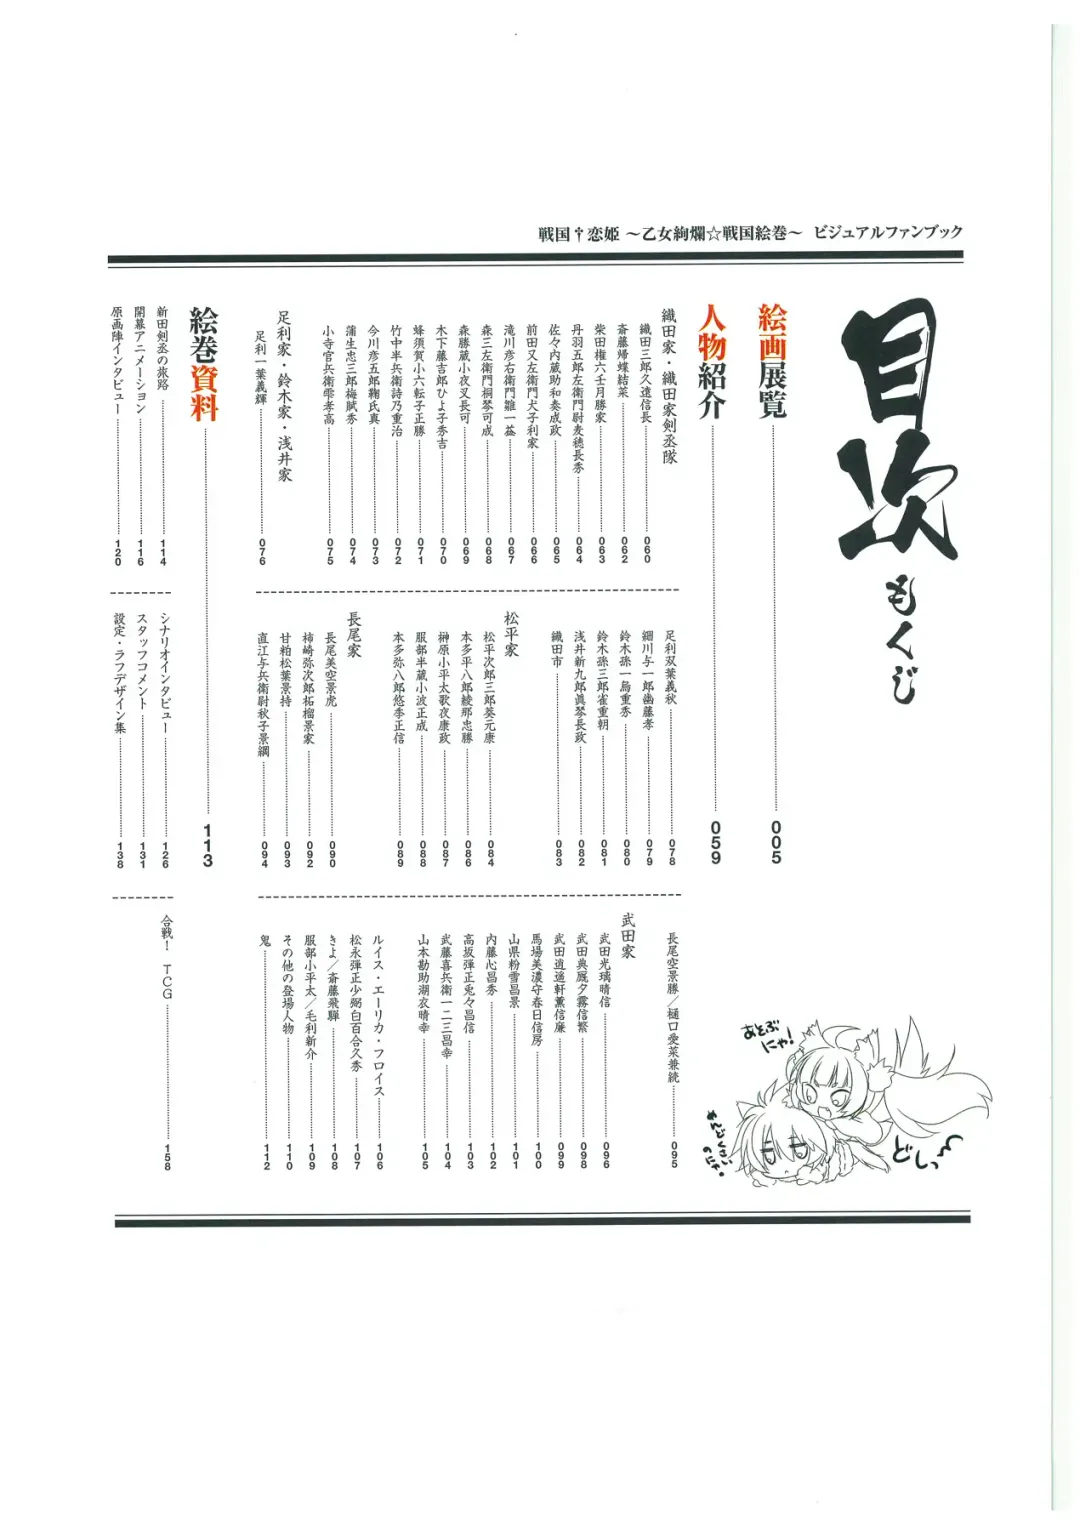 戦国†恋姫 ～乙女絢爛☆戦国絵巻～ ビジュアルファンブック
目次
もくじ
絵画展覧 005
人物紹介 059
織田家・織田家剣丞隊
織田三郎久遠信長 060
斎藤帰蝶結菜 062
柴田権六壬月勝家 063
丹羽五郎左衛門尉麦穂長秀 064
佐々内蔵助和奏成政 065
前田又左衛門犬子利家 066
滝川彦右衛門雛一益 067
森三左衛門桐琴可成 068
森勝蔵小夜叉長可 069
木下藤吉郎ひよ子秀吉 070
蜂須賀小六転子正勝 071
竹中半兵衛詩乃重治 072
今川彦五郎鞠氏真 073
蒲生忠三郎梅賦秀 074
小寺官兵衛雫孝高 075
足利家・鈴木家・浅井家
足利一葉義輝 076
足利双葉義秋 078
細川与一郎幽藤孝 079
鈴木孫一烏重秀 080
鈴木孫三郎雀重朝 081
浅井新九郎眞琴長政 082
織田市 083
松平家
松平次郎三郎葵元康 084
本多平八郎綾那忠勝 086
榊原小平太歌夜康政 087
服部半蔵小波正成 088
本多弥八郎悠季正信 089
長尾家
長尾美空景虎 090
柿崎弥次郎柘榴景家 092
甘粕松葉景持 093
直江与兵衛尉秋子景綱 094
長尾空景勝／樋口愛菜兼続 095
武田家
武田光璃晴信 096
武田典厩夕霧信繁 098
武田逍遥軒薫信廉 099
馬場美濃守春日信房 100
山県粉雪昌景 101
内藤心昌秀 102
高坂弾正兎々昌信 103
武藤喜兵衛一二三昌幸 104
山本勘助湖衣晴幸 105
ルイス・エーリカ・フロイス 106
松永弾正少弼白百合久秀 107
きよ／斎藤飛騨 108
服部小平太／毛利新介 109
その他の登場人物 110
鬼 112
絵巻資料 113
新田剣丞の旅路 114
開幕アニメーション 116
原画陣インタビュー 120
シナリオインタビュー 126
スタッフコメント 131
設定・ラフデザイン集 138
合戦！ TCG 158
あそぶにゃ！
めんどくさいにゃ。
どしっ